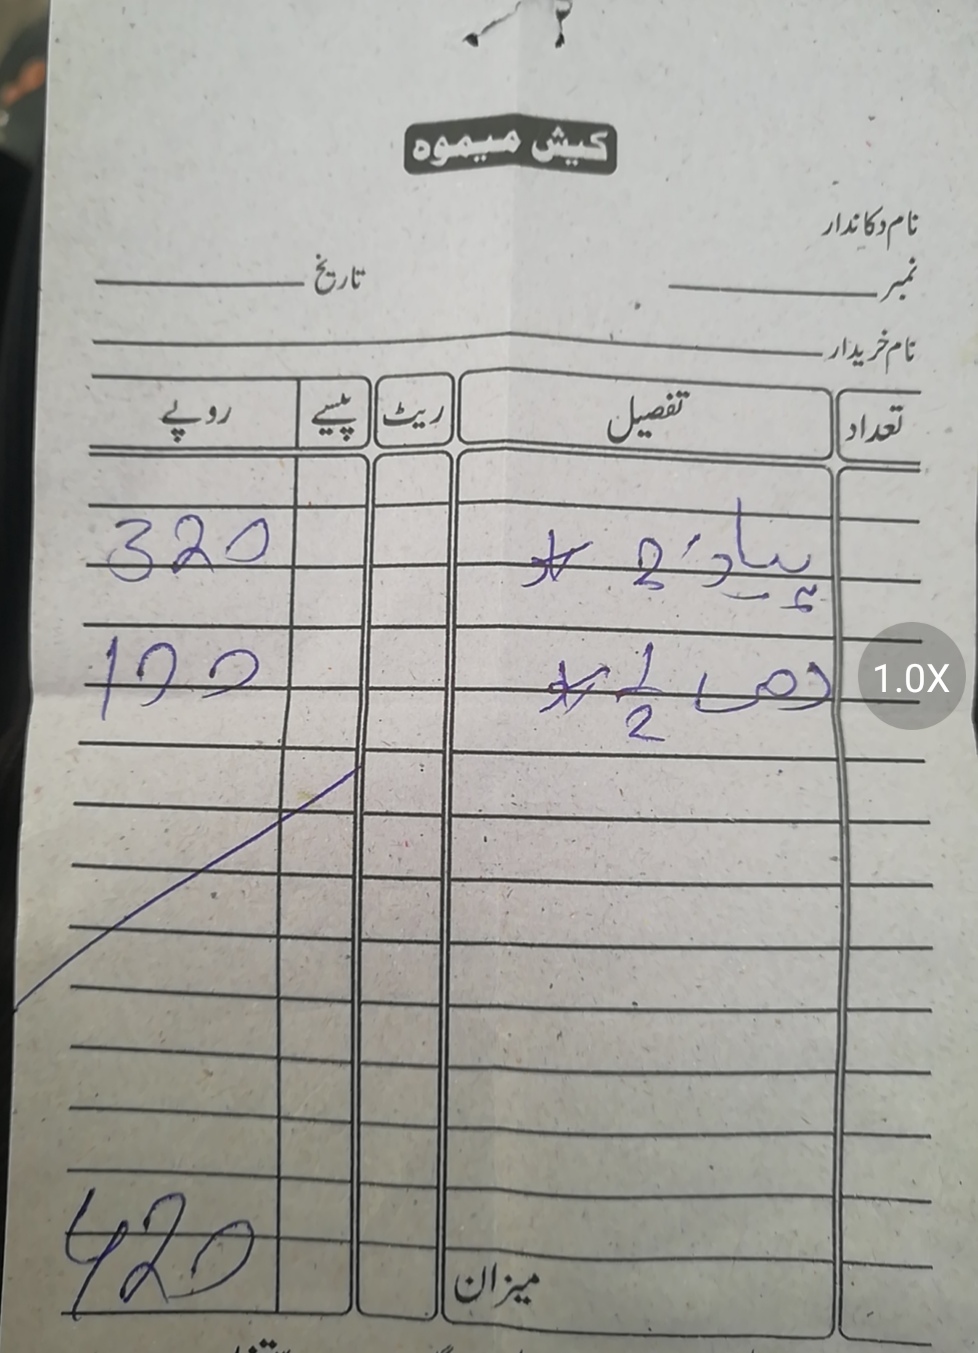 کیش میمو
نام دکاندار
نمبر تاریخ
نام خریدار
تعداد تفصیل ریٹ پیسے روپے
پیاز 2 320
دہی 1/2 100
میزان 420
1.0X